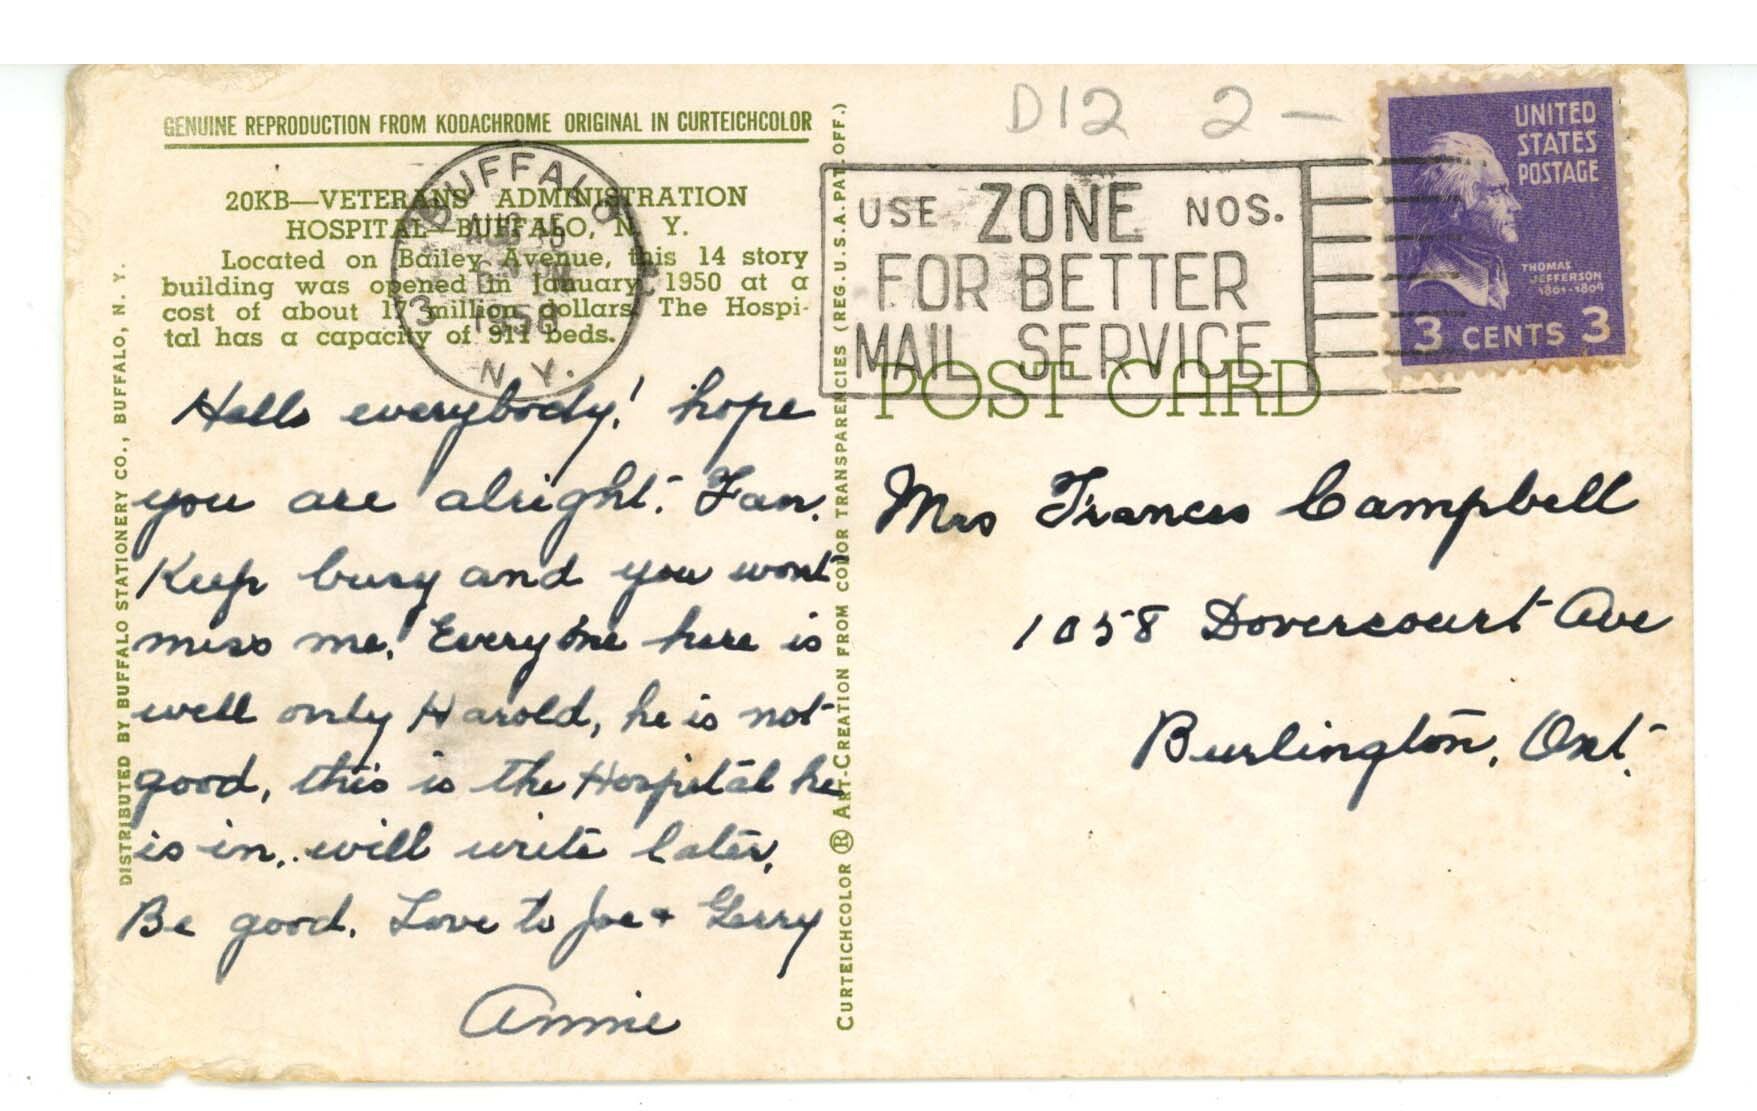 GENUINE REPRODUCTION FROM KODACHROME ORIGINAL IN CURTEICHCOLOR
20KB—VETERANS ADMINISTRATION
HOSPITAL—BUFFALO, N. Y.
Located on Bailey Avenue, this 14 story
building was opened in January, 1950 at a
cost of about 17 million dollars. The Hospi-
tal has a capacity of 911 beds.
BUFFALO
AUG 15
1958
N. Y.
Hello everybody! hope
you are alright. Fan.
Keep busy and you wont
miss me. Everyone here is
well only Harold, he is not
good, this is the Hospital he
is in, will write later,
Be good. Love to Joe + Gerry
Annie
DISTRIBUTED BY BUFFALO STATIONERY CO., BUFFALO, N. Y.
CURTEICHCOLOR ® ART-CREATION FROM COLOR TRANSPARENCIES (REG. U. S. A. PAT. OFF.)
D12 2—
USE ZONE NOS.
FOR BETTER
MAIL SERVICE
UNITED
STATES
POSTAGE
THOMAS
JEFFERSON
1801-1809
3 CENTS 3
POST CARD
Mrs Frances Campbell
1058 Dovercourt Ave
Burlington, Ont.